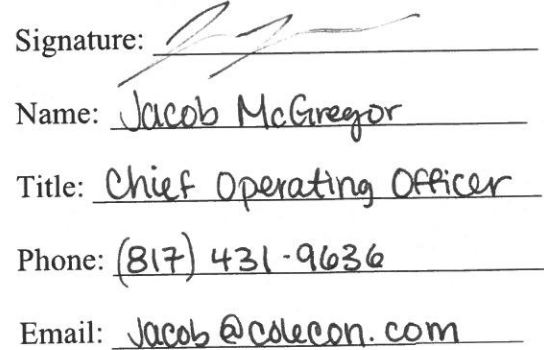 Signature:
Name: Jacob McGregor
Title: Chief Operating Officer
Phone: (817) 431-9636
Email: Jacob@colecon.com